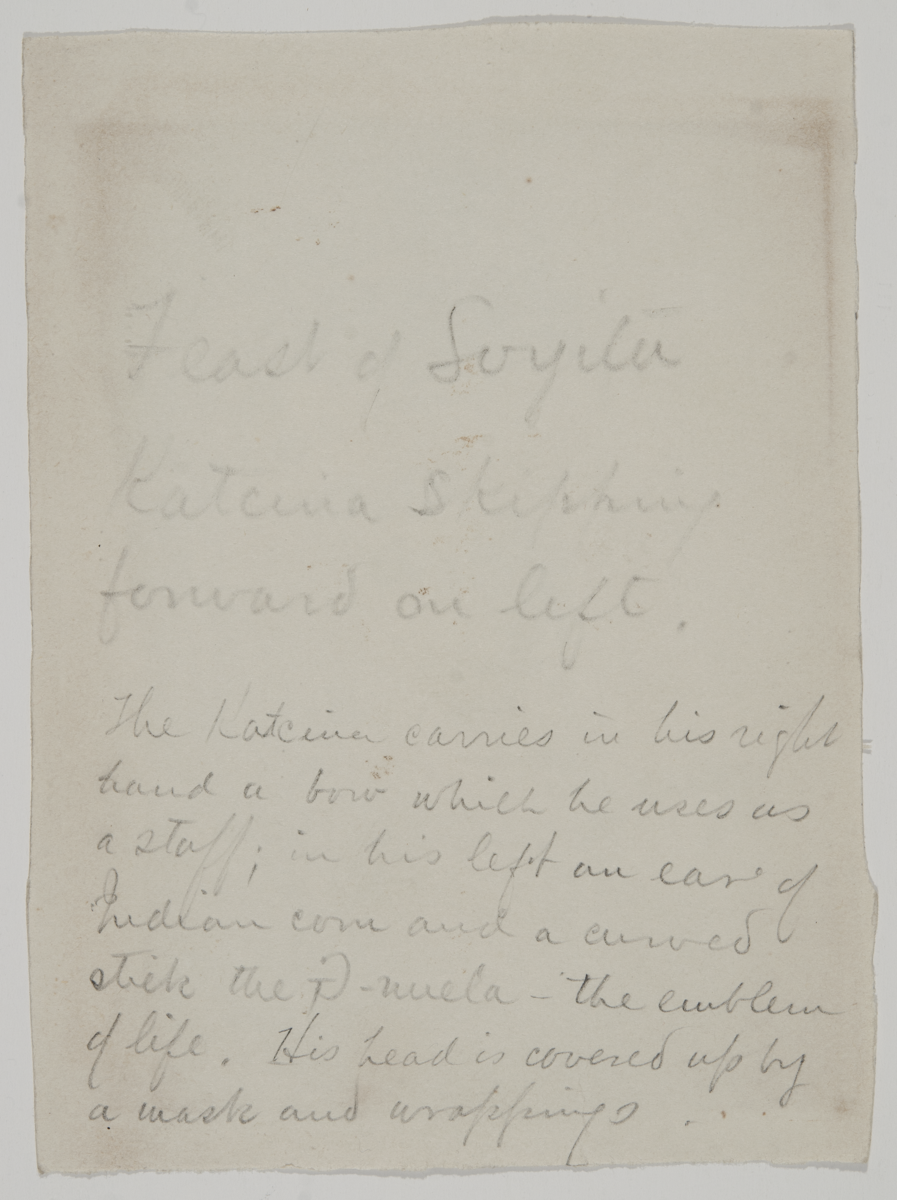 Feast of Soyita
Katcina Skipping
forward on left.
The Katcina carries in his right
hand a bow which he uses as
a staff; in his left an ear of
Indian corn and a curved
stick the -nuela - the emblem
of life. His head is covered up by
a mask and wrappings .